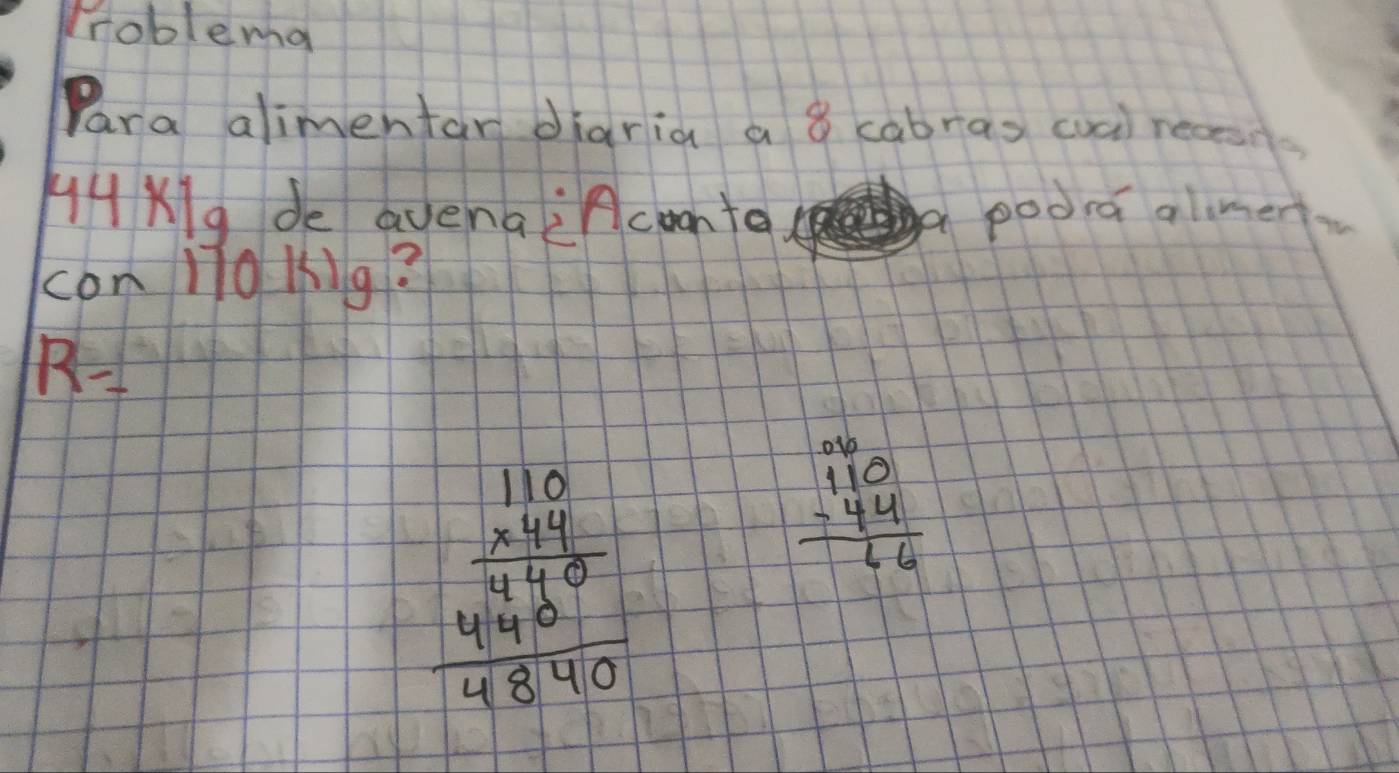 Problema
Para alimentar diaria a 8 cabras cual necesita
44 Klg de avena ¿A cuanta podrá alimentar
con 110 Klg?
R=
110
x 44
440
440
4840
010
110
- 44
66